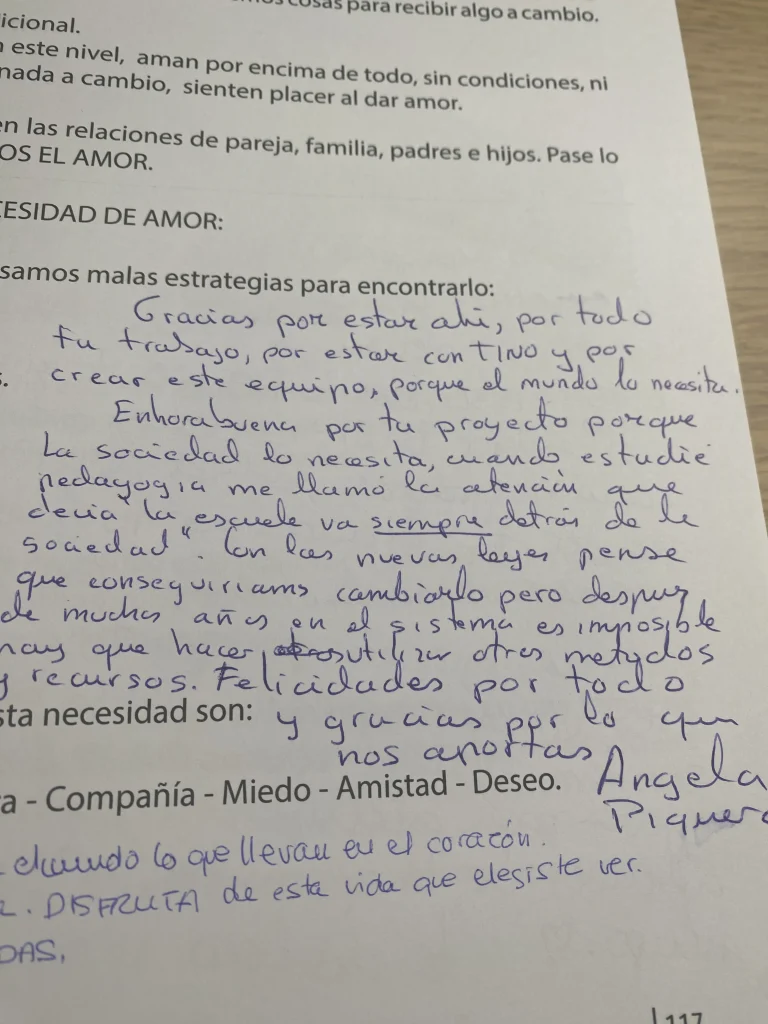 cosas para recibir algo a cambio.
icional.
este nivel, aman por encima de todo, sin condiciones, ni
nada a cambio, sienten placer al dar amor.
en las relaciones de pareja, familia, padres e hijos. Pase lo
OS EL AMOR.
CESIDAD DE AMOR:
samos malas estrategias para encontrarlo:
Gracias por estar ahi, por todo
tu trabajo, por estar con TINO y por
s. crear este equipo, porque el mundo lo necesita.
Enhorabuena por tu proyecto porque
La sociedad lo necesita, cuando estudié
pedagogia me llamó la atención que
decia "la escuela va siempre detrás de la
sociedad". Con las nuevas leyes pense
que conseguiriams cambiarlo pero despues
de muchos años en el sistema es imposible
hay que hacer, utilizar otros metodos
y recursos. Felicidades por todo
sta necesidad son: y gracias por lo que
nos aportas
a - Compañía - Miedo - Amistad - Deseo. Angela
Piquer
lo que llevan en el corazón.
2. DISFRUTA de esta vida que elegiste ver.
DAS.
117